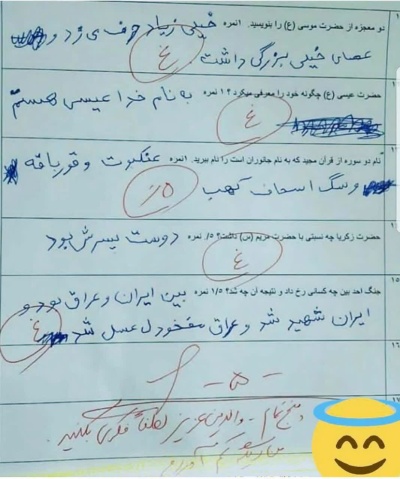 دو معجزه از حضرت موسی (ع) را بنویسید. ۱نمره خیلی زیاد حرف می زد و
عصای خیلی بزرگی داشت.
غ
حضرت عیسی (ع) چگونه خود را معرفی میکرد؟ ۱ نمره به نام خدا عیسی هستم
غ
نام دو سوره از قرآن مجید که به نام جانوران است را نام ببرید. ۱نمره عنکبوت و قورباقه
و سگ اصحاف کهب
۰/۵
حضرت زکریا چه نسبتی با حضرت مریم (س) داشت؟ ۰/۵ نمره دوست پسرش بود
غ
جنگ احد بین چه کسانی رخ داد و نتیجه آن چه شد؟ ۱/۵ نمره بین ایران و عراق بود و
ایران شهید شد و عراق مفخود ل عسل شد
غ
۱۶
-۵-
۱۷
پنج تمام - والدین عزیز لطفاً فکری بکنید.